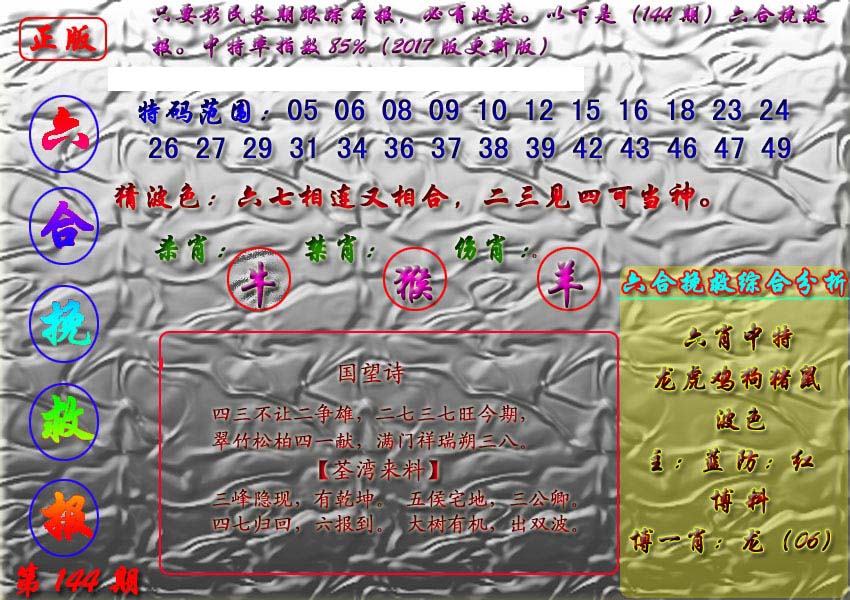 正版
只要彩民长期跟踪本报，必有收获。以下是（144期）六合挽救
报。中特率指数85%（2017版更新版）
六合挽救报
第144期
特码范围：05 06 08 09 10 12 15 16 18 23 24
26 27 29 31 34 36 37 38 39 42 43 46 47 49
猜波色：六七相连又相合，二三见四可当神。
杀肖：牛 禁肖：猴 伤肖：羊
国望诗
四三不让二争雄，二七三七旺今期，
翠竹松柏四一献，满门祥瑞朔三八。
【荃湾来料】
三峰隐现，有乾坤。 五侯宅地，三公卿。
四七归回，六报到。 大树有机，出双波。
六合挽救综合分析
六肖中特
龙虎鸡狗猪鼠
波色
主：蓝防：红
博料
博一肖：龙（06）